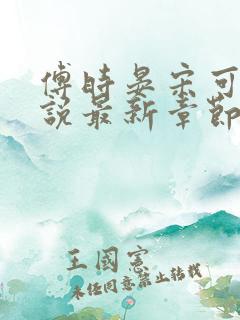 傅时晏宋可
说最新章節
王國憲
未经同意禁止转载